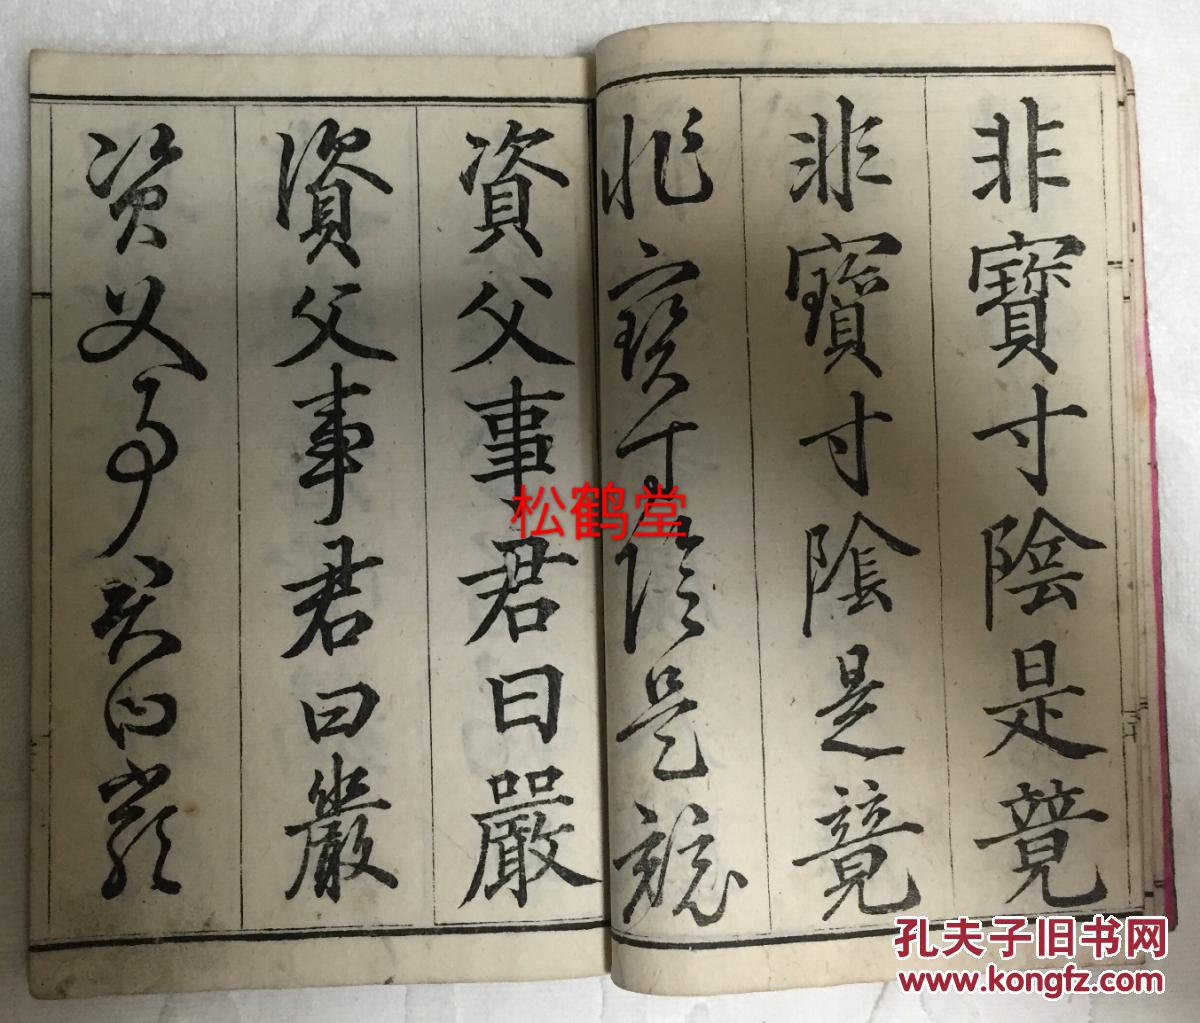 非寶寸陰是競
非寶寸陰是競
非寶寸陰是競
資父事君曰嚴
資父事君曰嚴
資父事君曰嚴
松鹤堂
孔夫子旧书网
www.kongfz.com